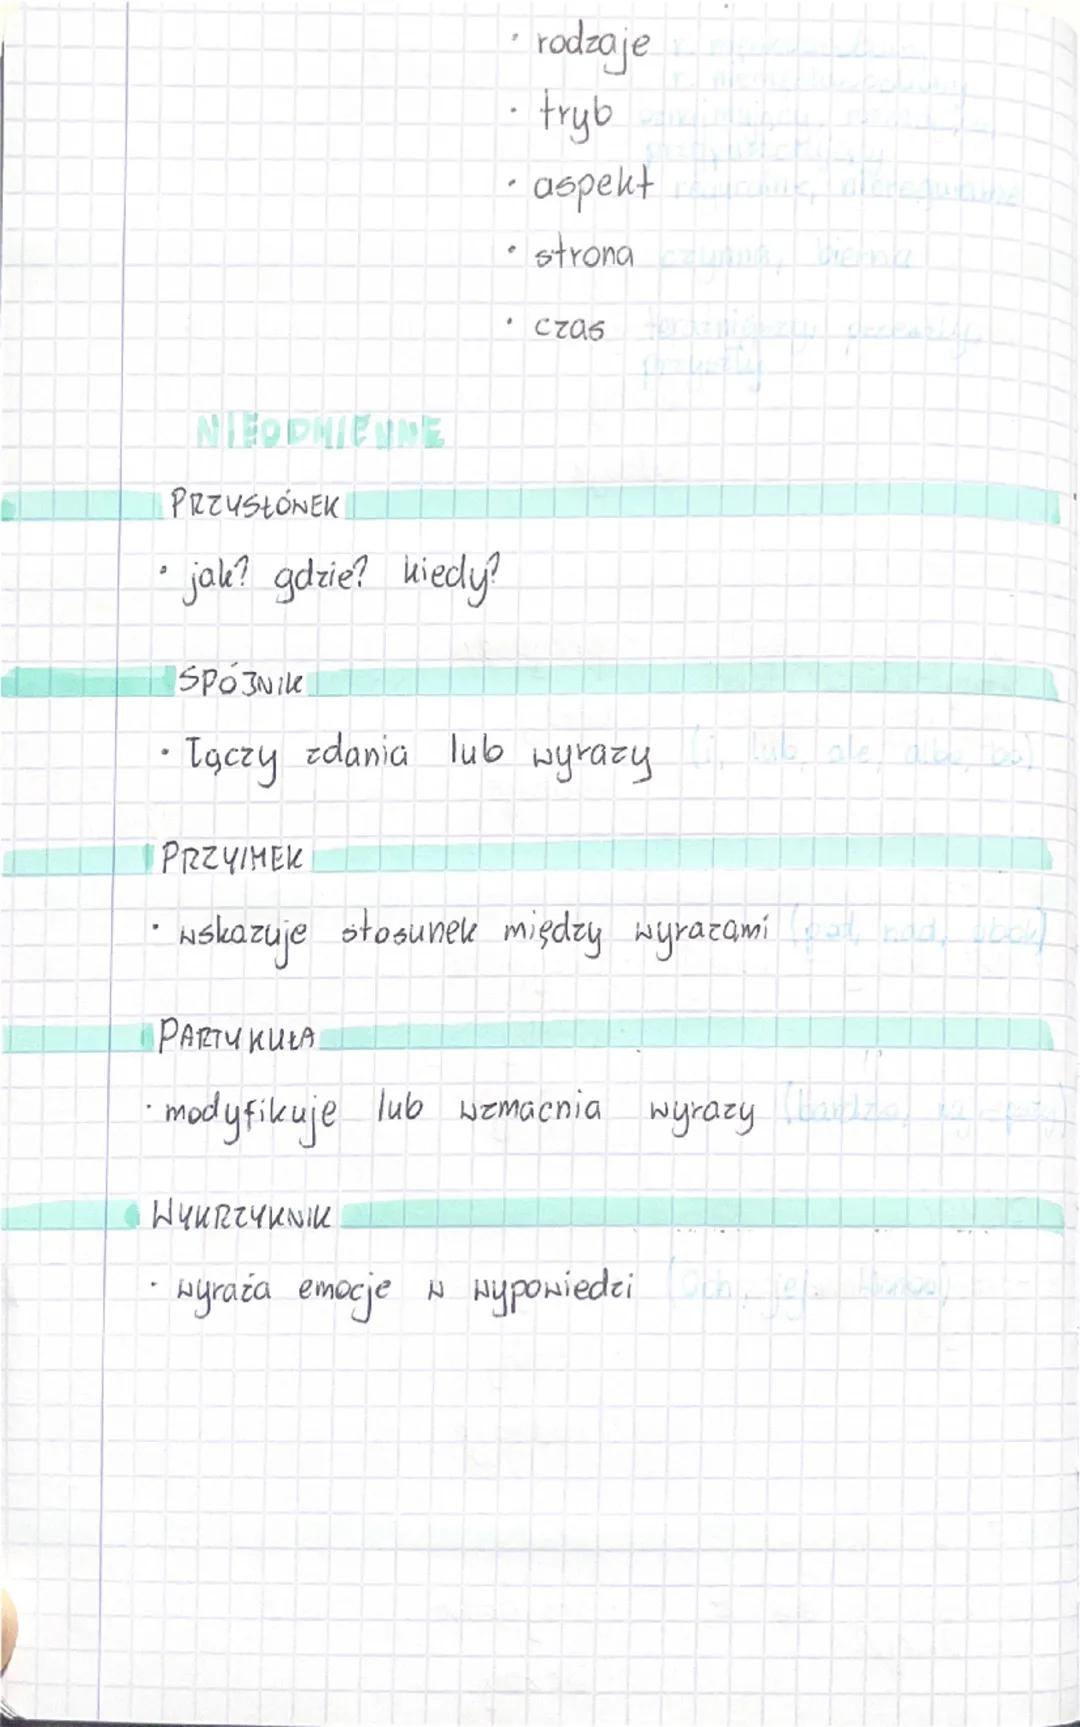 • rodzaje
• tryb
• aspekt
• strona czynna, bierna
• czas teraźniejszy, przeszły,
przyszły
NIEODMIENNE
PRZYSŁÓWEK
• jak? gdzie? kiedy?
SPÓJNIK
• łączy zdania lub wyrazy (i, lub, ale, albo, bo)
PRZYIMEK
• wskazuje stosunek między wyrazami (pod, nad, obok)
PARTYKUŁA
• modyfikuje lub wzmacnia wyrazy
WYKRZYKNIK
• wyraża emocje w wypowiedzi